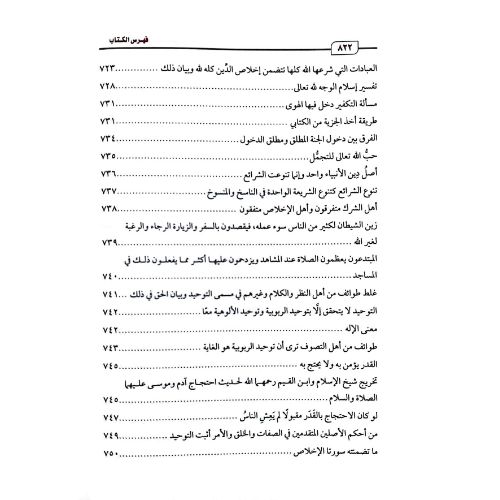 فهرس الكتاب
٨٢٢
العبادات التي شرعها الله كلها تتضمن إخلاص الدِّين كله لله وبيان ذلك ............... ٧٢٣
تفسير إسلام الوجه لله تعالى ............... ٧٢٨
مسألة التكفير دخل فيها الهوى ............... ٧٣١
طريقة أخذ الجزية من الكتابي ............... ٧٣١
الفرق بين دخول الجنة المطلق ومطلق الدخول ............... ٧٣٤
حبُّ الله تعالى للتجمُّل ............... ٧٣٥
أصلُ دِين الأنبياء واحد وإنما تنوعت الشرائع ............... ٧٣٦
تنوع الشرائع كتنوع الشريعة الواحدة في الناسخ والمنسوخ ............... ٧٣٧
أهل الشرك متفرقون وأهل الإخلاص متفقون ............... ٧٣٨
زين الشيطان لكثير من الناس سوء عمله، فيقصدون بالسفر والزيارة الرجاء والرغبة
لغير الله ............... ٧٣٩
المبتدعون يعظمون الصلاة عند المشاهد ويزدحمون عليها أكثر مما يفعلون ذلك في
المساجد ............... ٧٤٠
غلط طوائف من أهل النظر والكلام وغيرهم في مسمى التوحيد وبيان الحق في ذلك ... ٧٤١
التوحيد لا يتحقق إلَّا بتوحيد الربوبية وتوحيد الألوهية معًا ............... ٧٤٢
معنى الإله ............... ٧٤٢
طوائف من أهل التصوف ترى أن توحيد الربوبية هو الغاية ............... ٧٤٣
القدر يؤمن به ولا يحتج به ............... ٧٤٥
تخريج شيخ الإسلام وابن القيم رحمهما الله لحديث احتجاج آدم وموسى عليهما
الصلاة والسلام ............... ٧٤٥
لو كان الاحتجاج بالقَدَر مقبولًا لم يَعِش الناسُ ............... ٧٤٧
من أحكم الأصلين المتقدمين في الصفات والخلق والأمر أثبت التوحيد ............... ٧٤٩
ما تضمنته سورتا الإخلاص ............... ٧٥٠